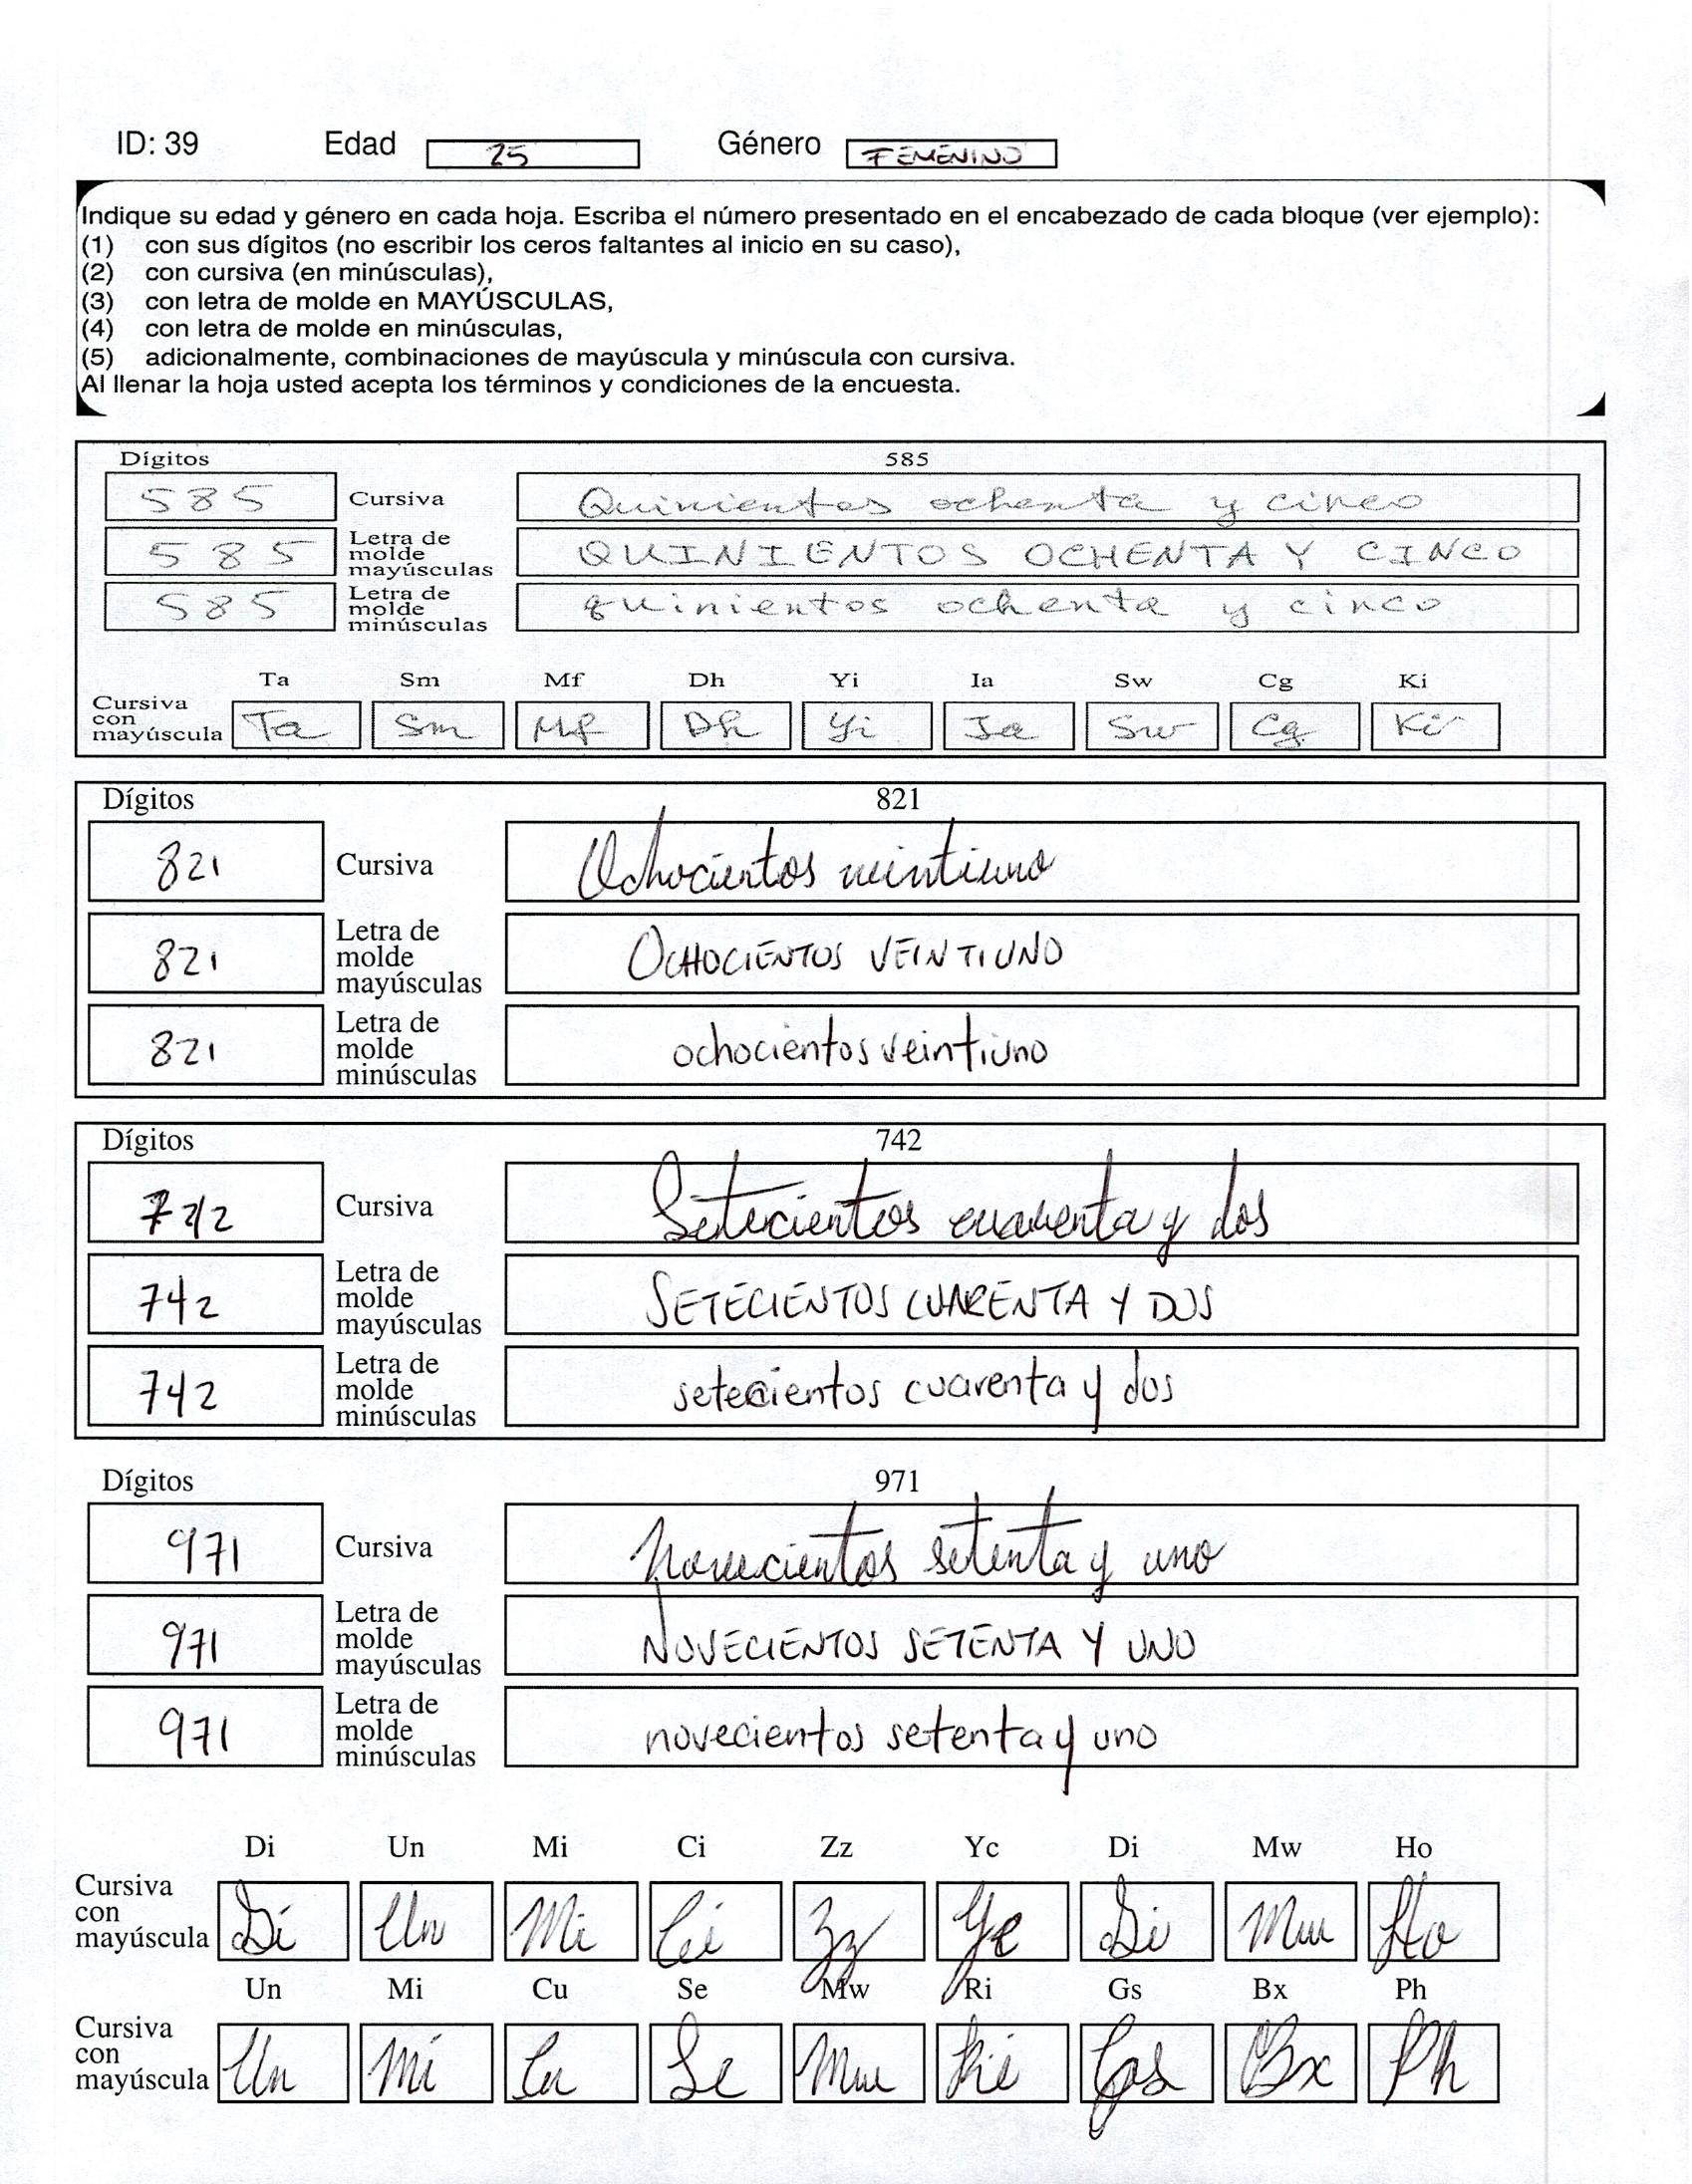 ID: 39 Edad 25 Género FEMENINO
Indique su edad y género en cada hoja. Escriba el número presentado en el encabezado de cada bloque (ver ejemplo):
(1) con sus dígitos (no escribir los ceros faltantes al inicio en su caso),
(2) con cursiva (en minúsculas),
(3) con letra de molde en MAYÚSCULAS,
(4) con letra de molde en minúsculas,
(5) adicionalmente, combinaciones de mayúscula y minúscula con cursiva.
Al llenar la hoja usted acepta los términos y condiciones de la encuesta.
Dígitos 585
585 Cursiva Quinientos ochenta y cinco
585 Letra de molde mayúsculas QUINIENTOS OCHENTA Y CINCO
585 Letra de molde minúsculas quinientos ochenta y cinco
Ta Sm Mf Dh Yi Ia Sw Cg Ki
Cursiva con mayúscula Ta Sm Mf Dh Yi Ia Sw Cg Ki
Dígitos 821
821 Cursiva Ochocientos veintiuno
821 Letra de molde mayúsculas OCHOCIENTOS VEINTIUNO
821 Letra de molde minúsculas ochocientos veintiuno
Dígitos 742
742 Cursiva Setecientos cuarenta y dos
742 Letra de molde mayúsculas SETECIENTOS CUARENTA Y DOS
742 Letra de molde minúsculas setecientos cuarenta y dos
Dígitos 971
971 Cursiva Novecientos setenta y uno
971 Letra de molde mayúsculas NOVECIENTOS SETENTA Y UNO
971 Letra de molde minúsculas novecientos setenta y uno
Di Un Mi Ci Zz Yc Di Mw Ho
Cursiva con mayúscula Di Un Mi Ci Zz Yc Di Mw Ho
Un Mi Cu Se Mw Ri Gs Bx Ph
Cursiva con mayúscula Un Mi Cu Se Mw Ri Gs Bx Ph